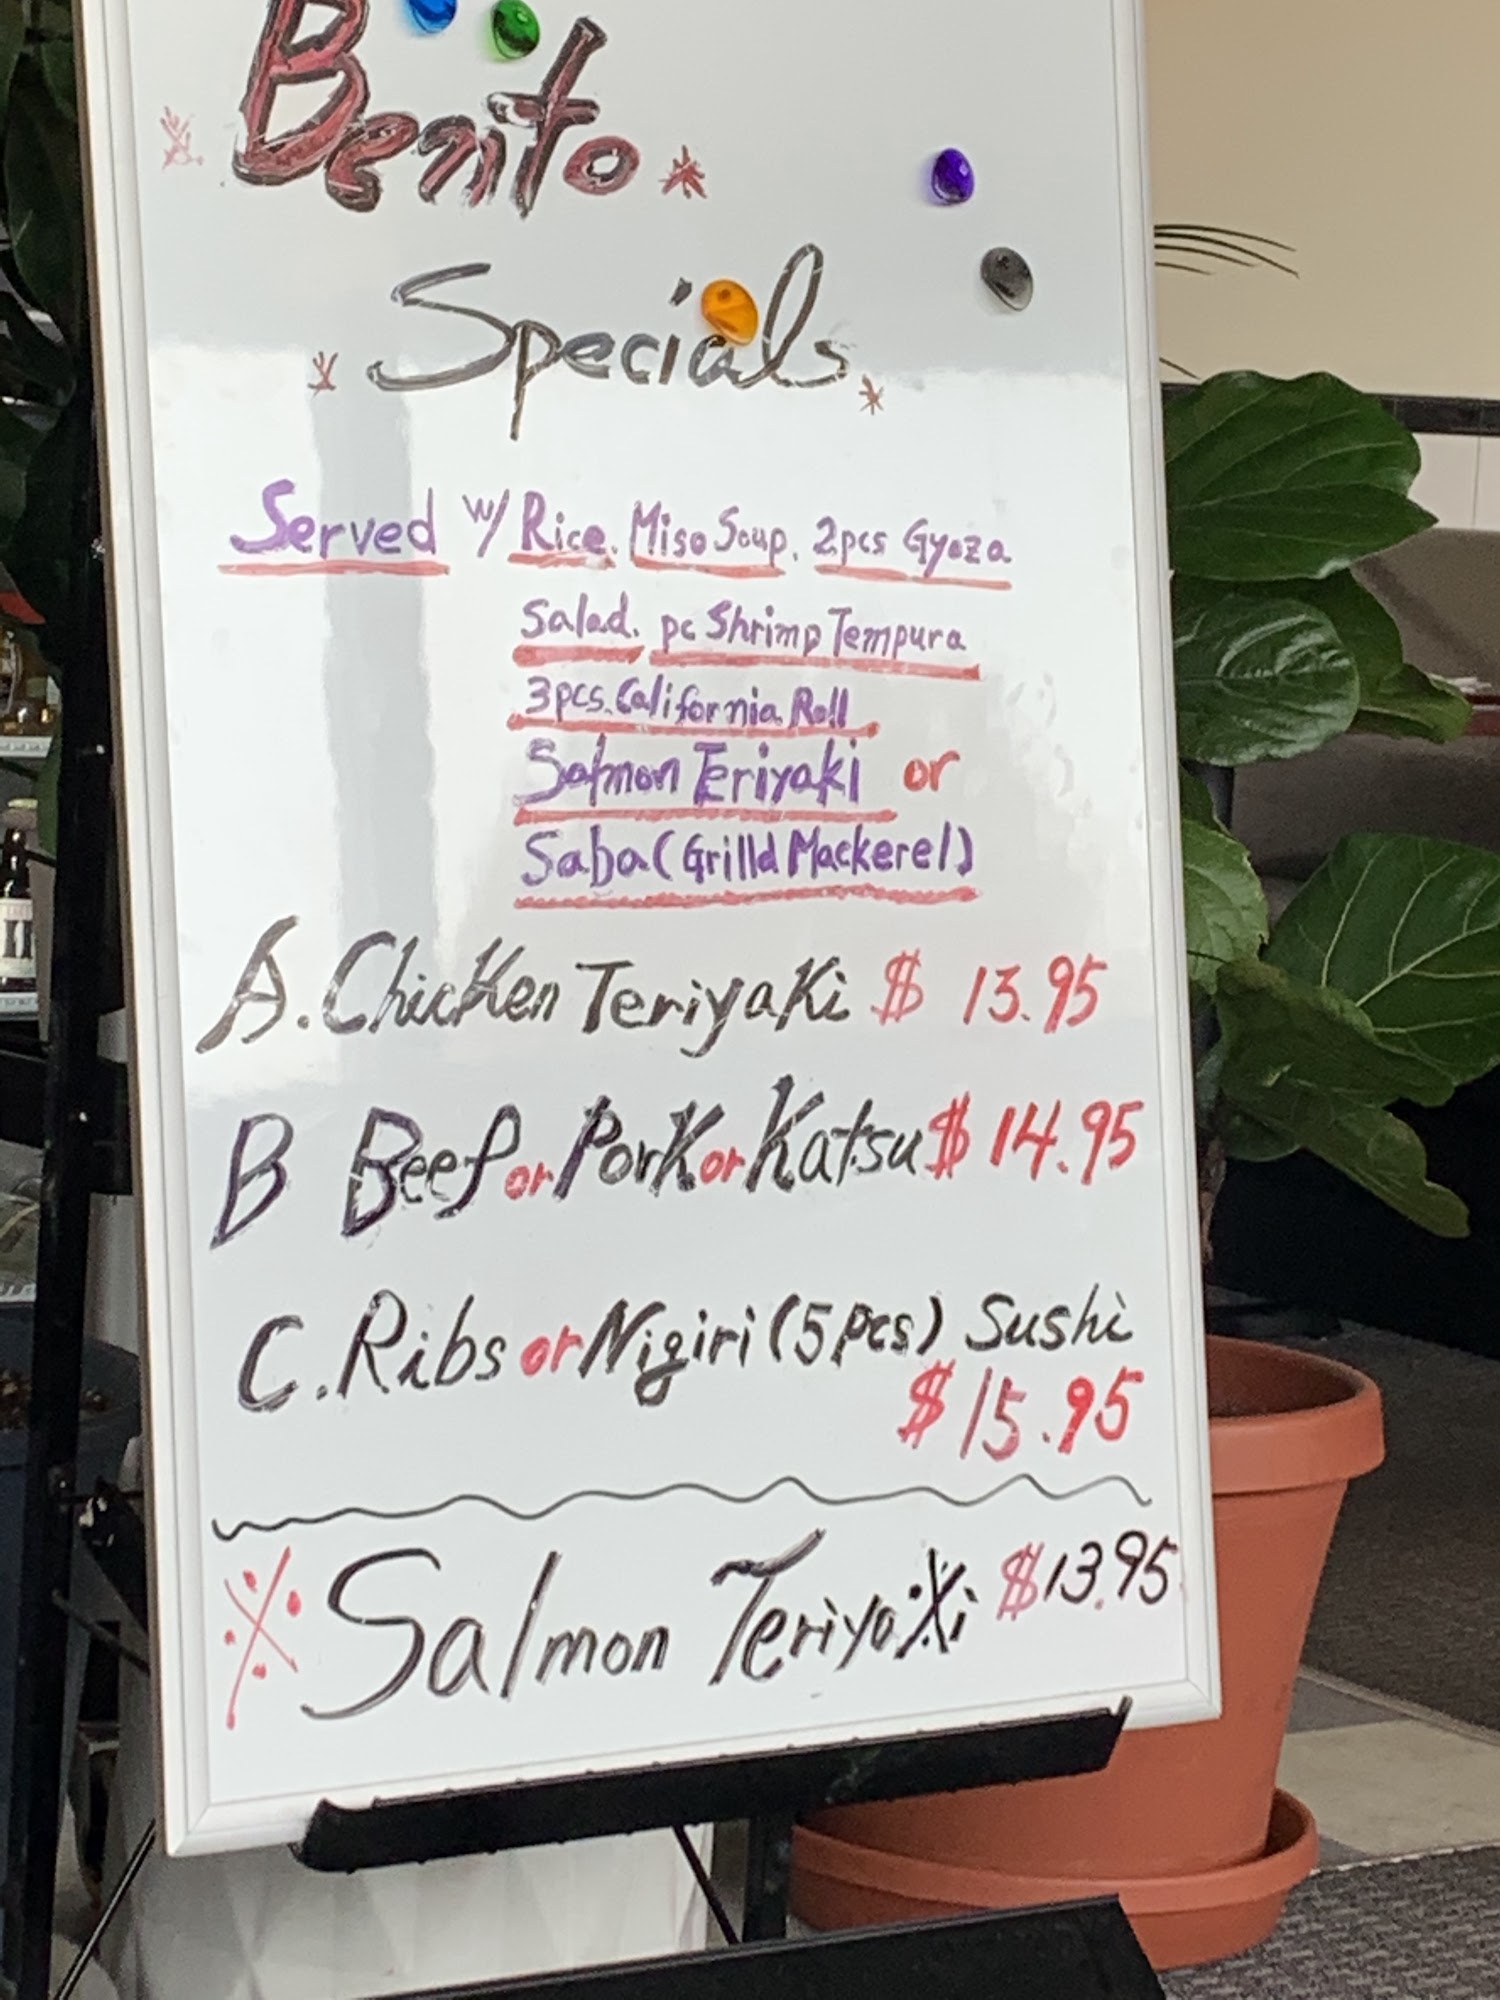 Bento
Specials
Served w/ Rice. Miso Soup. 2pcs Gyoza
Salad. pc Shrimp Tempura
3pcs. California Roll
Salmon Teriyaki or
Saba (Grilld Mackerel)
A. Chicken Teriyaki $ 13.95
B Beef or Pork or Katsu $ 14.95
C. Ribs or Nigiri (5pcs) Sushi
$ 15.95
※ Salmon Teriyaki $13.95